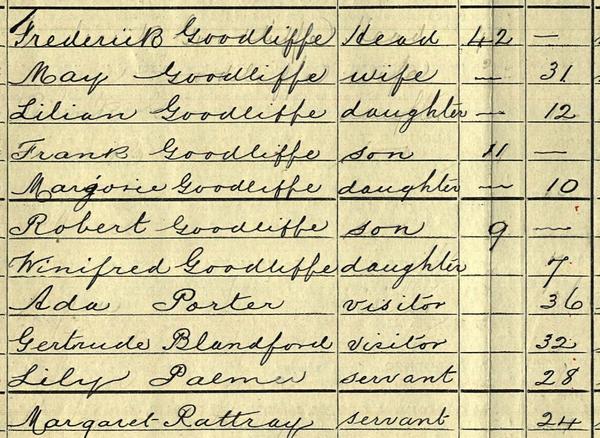 Frederick Goodliffe Head 42 —
May Goodliffe wife — 31
Lilian Goodliffe daughter — 12
Frank Goodliffe son 11 —
Marjorie Goodliffe daughter — 10
Robert Goodliffe son 9 —
Winifred Goodliffe daughter 7
Ada Porter visitor 36
Gertrude Blandford visitor 32
Lily Palmer servant 28
Margaret Rattray servant 24